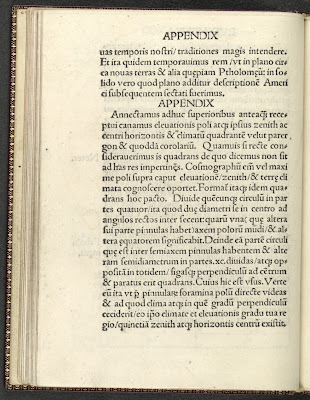 APPENDIX
uas temporis nostri/ traditiones magis intendere.
Et ita quidem temporauimus rem /vt in plano cir
ca nouas terras & alia quępiam Ptholomęū: in so
lido vero quod plano additur descriptionē Ameri
ci subsequentem sectati fuerimus.
APPENDIX
Annectamus adhuc superioribus anteaq̄ȝ rece
ptui canamus eleuationis poli atqȝ ipsius zenith ac
centri horizontis & climatū quadrantē velut parer
gon & quoddā corolariū. Quamuis si recte con
siderauerimus is quadrans de quo dicemus non sit
ad has res impertinēs. Cosmographū em̄ vel maxi
me poli supra caput eleuationē/zenith/& terrę cli
mata cognoscere oportet. Format̃ itaqȝ idem qua
drans hoc pacto. Diuide quēcunqȝ circulū in par
tes quatuor/ita quod duę diametri se in centro ad
angulos rectos inter secent:quarū vna(que altera
sui parte pinnulas habet)axem polorū mudi/& al
tera equatorem significabit. Deinde eā partē circuli
quę est inter semiaxem pinnulas habentem & alte
ram semidiametrum in partes.xc.diuidas/atqȝ op
positā in totidem/figasqȝ perpendiculū ad cētrum
& paratus erit quadrans. Cuius hic est vsus. Verte
eū ita vt ꝑ pinnulare foramina polū directe videas
& ad quod clima atqȝ in quē gradū perpendiculū
ceciderit/eo ip̄o climate et eleuationis gradu tua re
gio/quinetiā zenith atqȝ horizontis centrū existit.